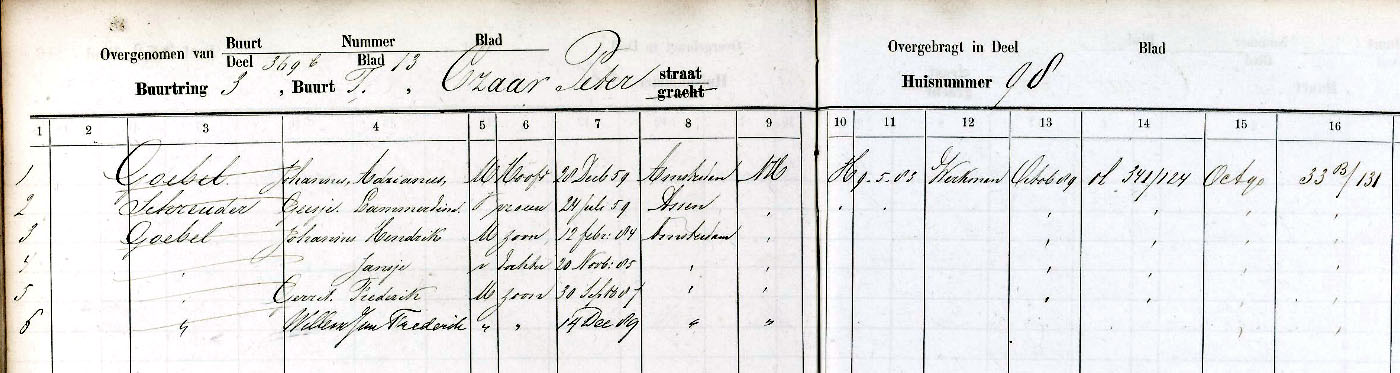 Overgenomen van Buurt Nummer Blad Overgebragt in Deel Blad
Deel 369 6 Blad 13
Buurtring 3, Buurt T., Czaar Peter straat Huisnummer 98
gracht
1 2 3 4 5 6 7 8 9 10 11 12 13 14 15 16
1 Goebel. Johannes, Marianus, M Hoofd 20 Decb 59 Amsterdam NH H 9.5.83 Werkman Octob 89 341/124 Oct 90 33 B/131
2 Schreuder Lammerdina. V vrouw 24 Juli 59 Assen
3 Goebel Johannes Hendrik M zoon 12 febr: 84 Amsterdam
4 Jansje v dochter 20 Novb: 85
5 Gerret Frederik M zoon 30 Septb 87
6 " Willem Jan Frederik " " 14 Dec 89 " "